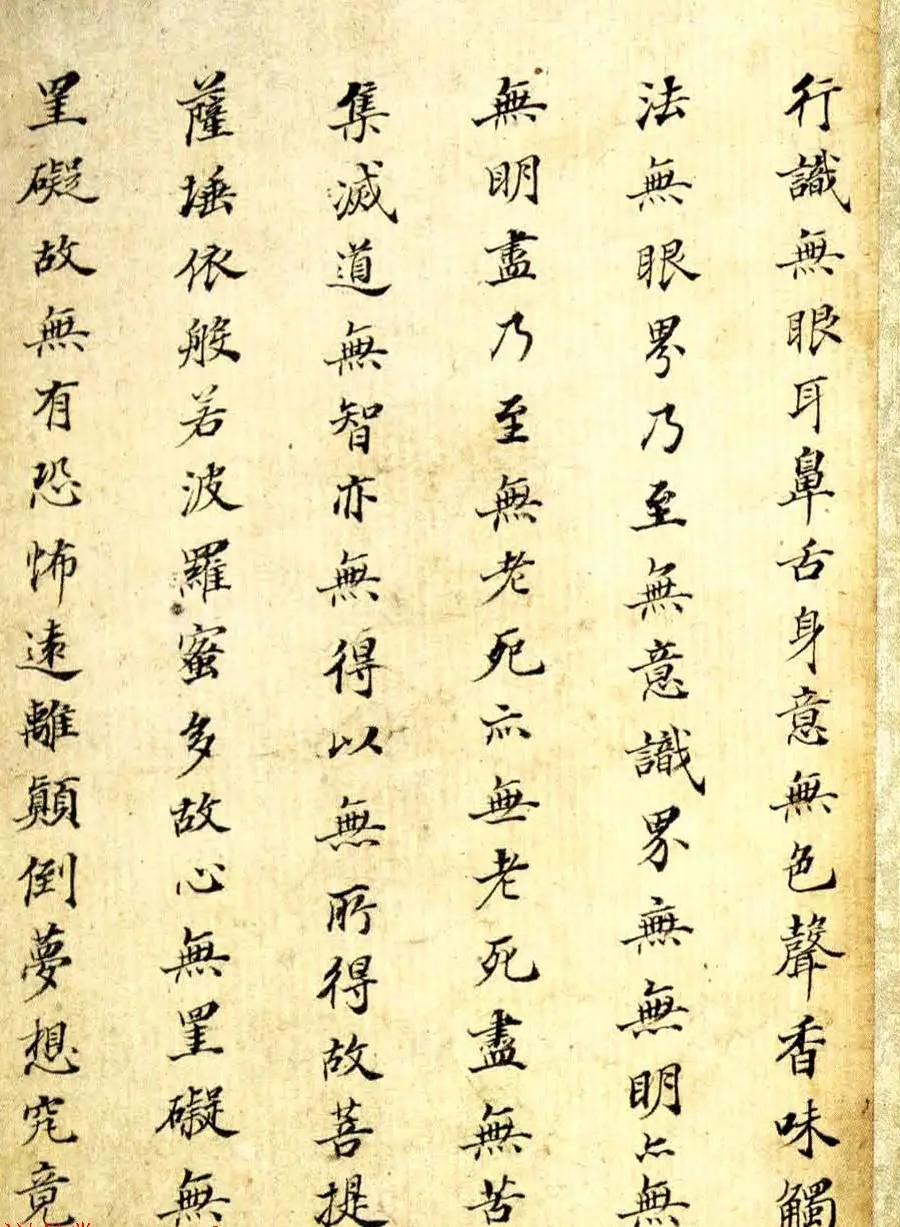 行識無眼耳鼻舌身意無色聲香味觸
法無眼界乃至無意識界無無明亦無
無明盡乃至無老死亦無老死盡無苦
集滅道無智亦無得以無所得故菩提
薩埵依般若波羅蜜多故心無罣礙無
罣礙故無有恐怖遠離顛倒夢想究竟